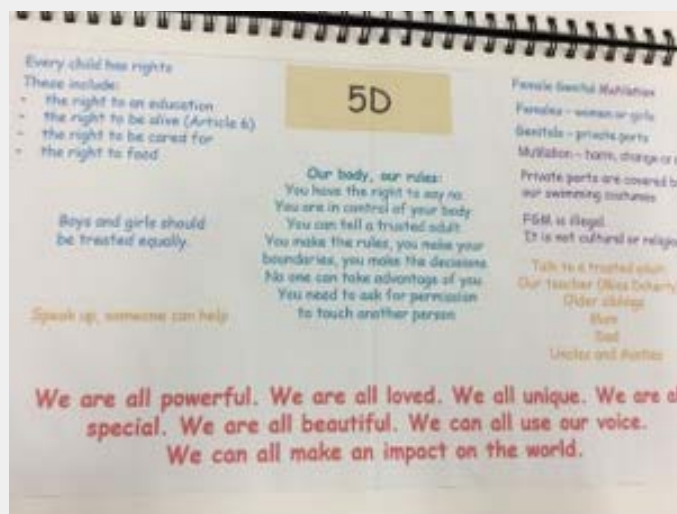 Every child has rights
These include:
- the right to an education
- the right to be alive (Article 6)
- the right to be cared for
- the right to food
Boys and girls should
be treated equally.
Speak up, someone can help
5D
Our body, our rules:
You have the right to say no.
You are in control of your body
You can tell a trusted adult
You make the rules, you make your
boundaries, you make the decisions
No one can take advantage of you
You need to ask for permission
to touch another person
Female Genital Mutilation
Females – women or girls
Genitals – private parts
Mutilation – harm, change or
Private parts are covered
our swimming costumes
FGM is illegal.
It is not cultural or
Talk to a trusted adult
Our teacher (Miss
Older siblings
Mum
Dad
Uncles and Aunties
We are all powerful. We are all loved. We all unique. We are
special. We are all beautiful. We can all use our voice.
We can all make an impact on the world.